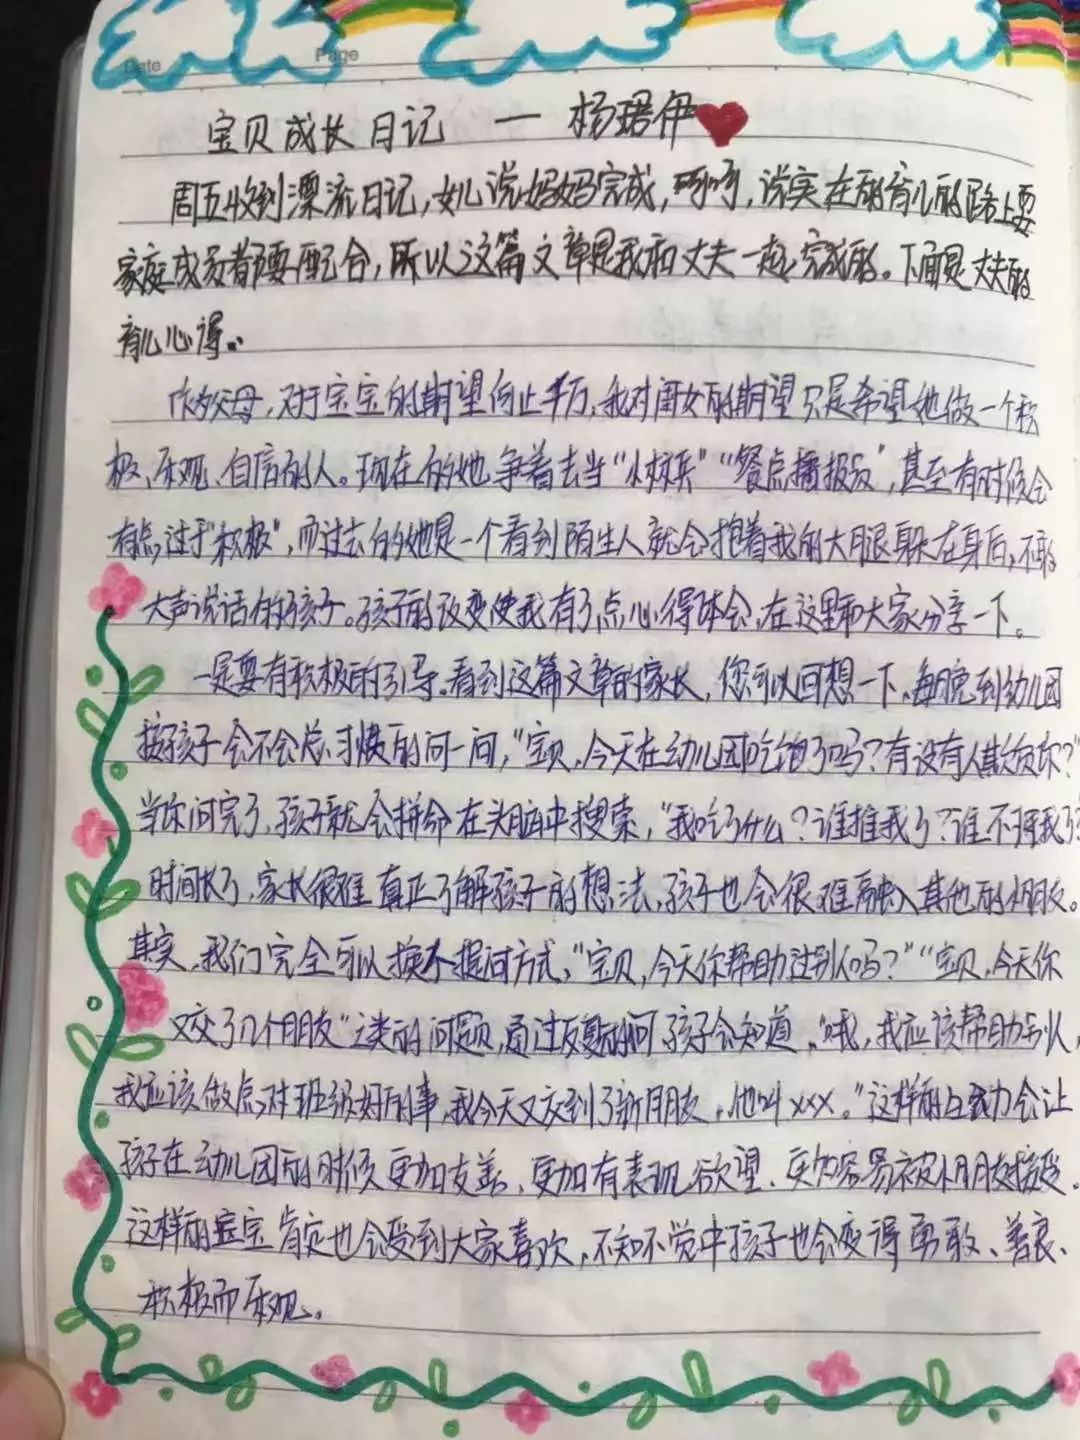 Date
Page
宝贝成长日记 — 杨珺伊
周五收到漂流日记,女儿说妈妈完成,呵呵,说实在的育儿的路上要
家庭成员都要配合,所以这篇文章是我和丈夫一起完成的。下面是丈夫的
育儿心得。
作为父母,对于宝宝的期望何止千万,我对闺女的期望只是希望她做一个积
极、乐观、自信的人。现在的她争着去当“小标兵”“餐点播报员”,甚至有时候会
有点过于“积极”,而过去的她是一个看到陌生人就会抱着我的大腿躲在身后,不敢
大声说话的孩子。孩子的改变使我有了点心得体会,在这里和大家分享一下。
一是要有积极的引导。看到这篇文章的家长,您可以回想一下,每晚到幼儿园
接孩子会不会总习惯的问一问,“宝贝,今天在幼儿园吃饱了吗?有没有人欺负你?”
当你问完了,孩子就会拼命在头脑中搜索,“我吃了什么?谁推我了?谁不理我了?
时间长了,家长很难真正了解孩子的想法,孩子也会很难融入其他的小朋友。
其实,我们完全可以换个提问方式,“宝贝,今天你帮助过别人吗?”“宝贝,今天你
又交了几个朋友”这类的问题,通过反复的问孩子会知道,“哦,我应该帮助别人,
我应该做点对班级好的事,我今天又交到了新朋友,他叫xxx。”这样的自我力会让
孩子在幼儿园的时候更加友善、更加有表现欲望、更为容易被小朋友接受。
这样的宝宝肯定也会受到大家喜欢,不知不觉中孩子也会变得勇敢、善良、
积极而乐观。